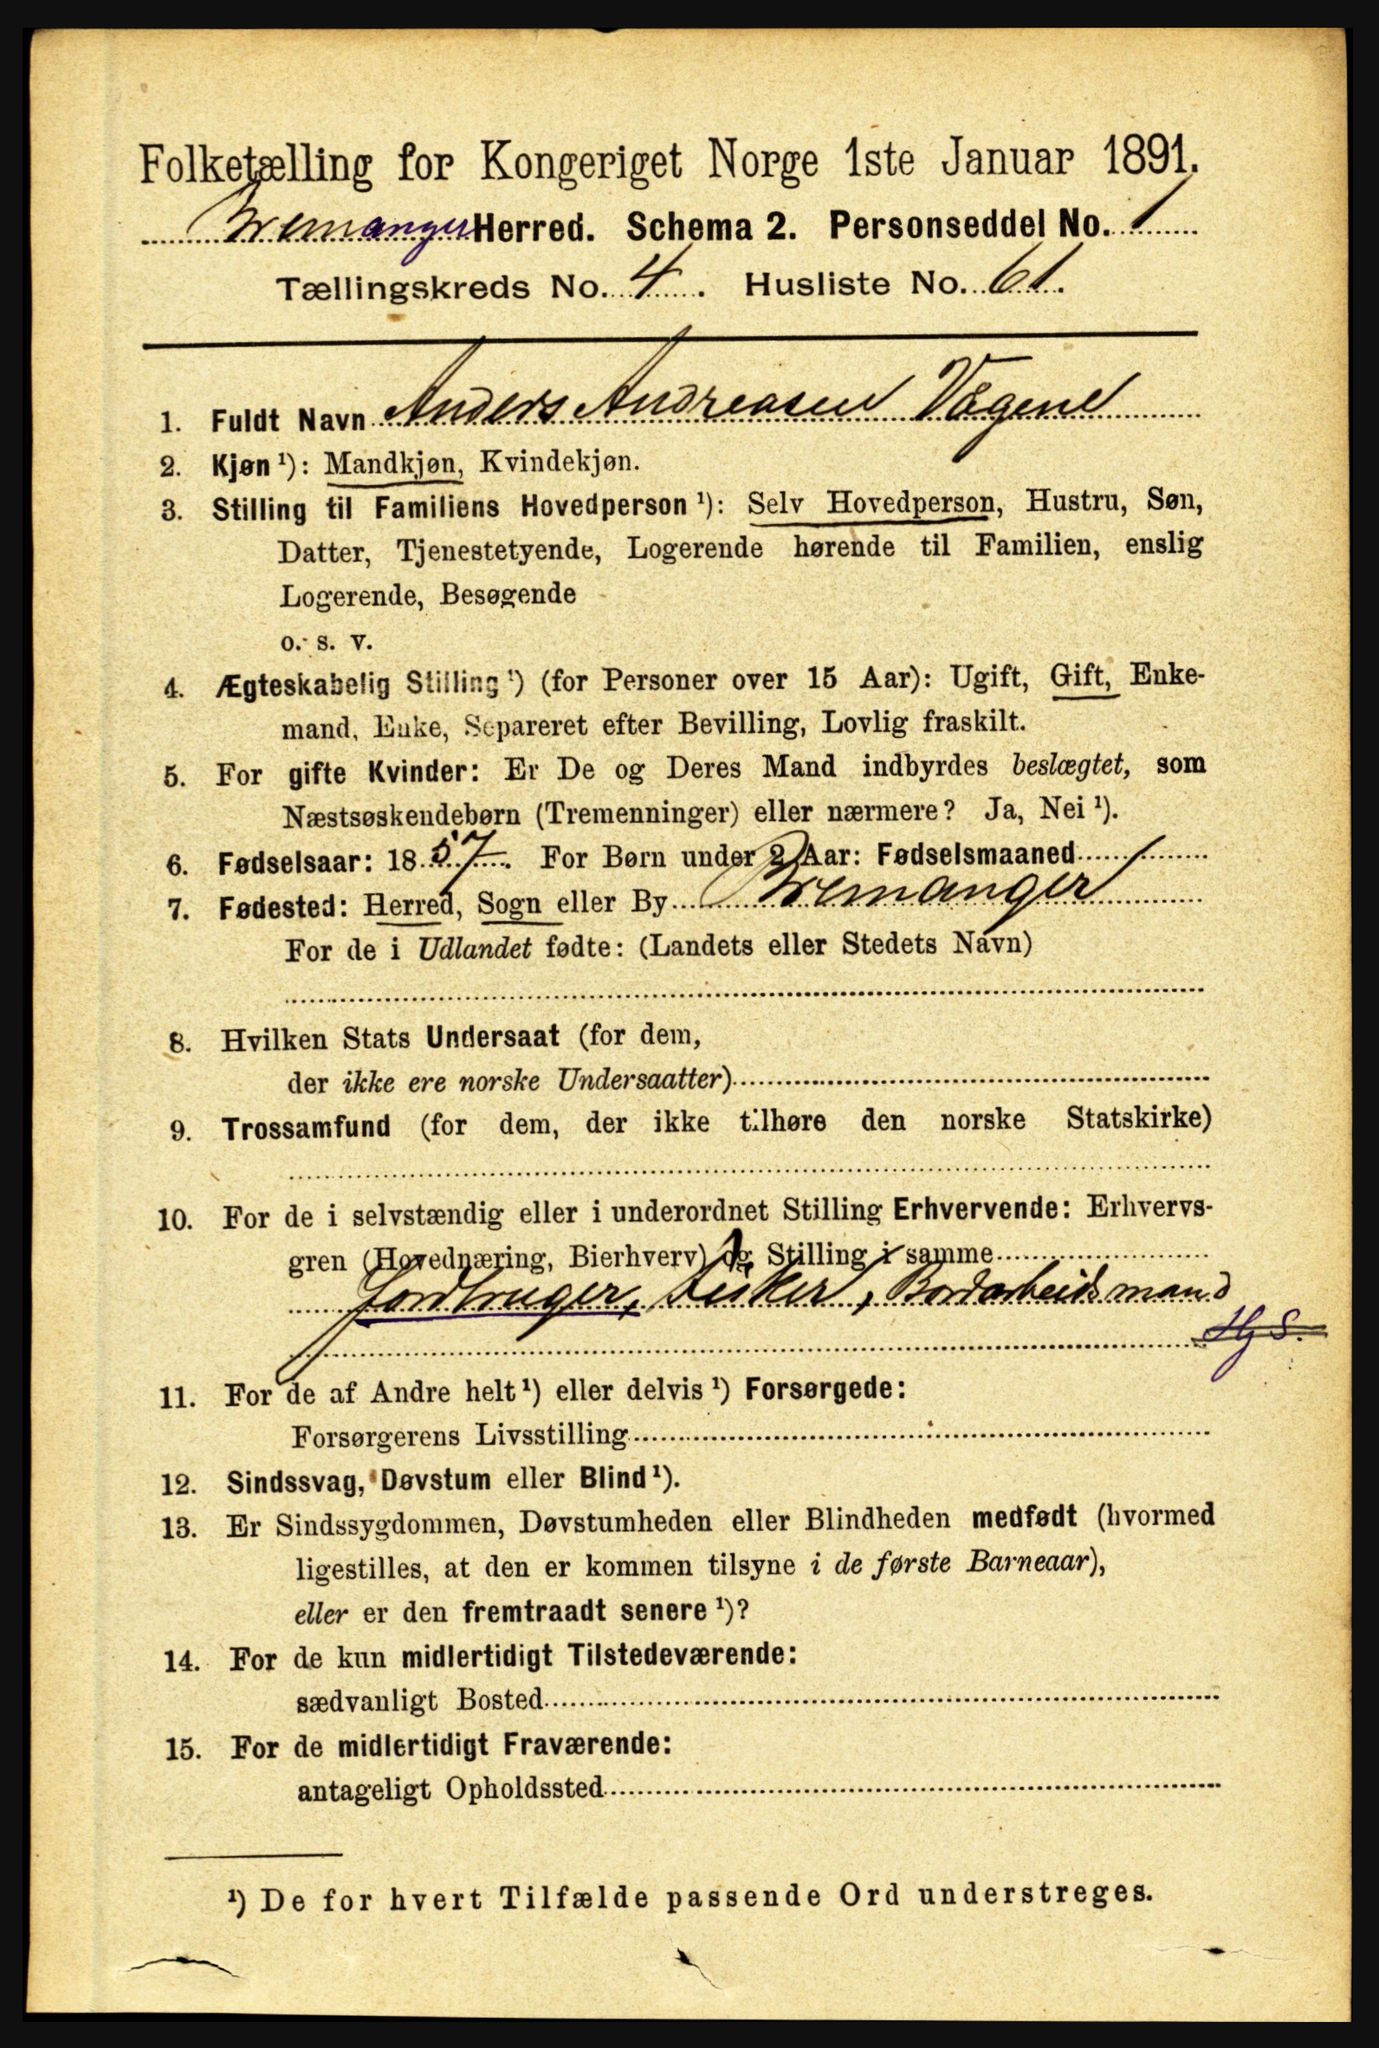 Folketælling for Kongeriget Norge 1ste Januar 1891.
Bremanger Herred. Schema 2. Personseddel No. 1
Tællingskreds No. 4. Husliste No. 61.
1. Fuldt Navn Anders Andreasen Vågene
2. Kjøn ¹): Mandkjøn, Kvindekjøn.
3. Stilling til Familiens Hovedperson ¹): Selv Hovedperson, Hustru, Søn,
Datter, Tjenestetyende, Logerende hørende til Familien, enslig
Logerende, Besøgende
o. s. v.
4. Ægteskabelig Stilling ¹) (for Personer over 15 Aar): Ugift, Gift, Enke-
mand, Enke, Separeret efter Bevilling, Lovlig fraskilt.
5. For gifte Kvinder: Er De og Deres Mand indbyrdes beslægtet, som
Næstsøskendebørn (Tremenninger) eller nærmere? Ja, Nei ¹).
6. Fødselsaar: 1857. For Børn under 2 Aar: Fødselsmaaned
7. Fødested: Herred, Sogn eller By Bremanger
For de i Udlandet fødte: (Landets eller Stedets Navn)
8. Hvilken Stats Undersaat (for dem,
der ikke ere norske Undersaatter)
9. Trossamfund (for dem, der ikke tilhøre den norske Statskirke)
10. For de i selvstændig eller i underordnet Stilling Erhvervende: Erhvervs-
gren (Hovednæring, Bierhverv) og Stilling i samme
Jordbruger, Fisker, Bordarbeidsmand
Hj S.
11. For de af Andre helt ¹) eller delvis ¹) Forsørgede:
Forsørgerens Livsstilling
12. Sindssvag, Døvstum eller Blind ¹).
13. Er Sindssygdommen, Døvstumheden eller Blindheden medfødt (hvormed
ligestilles, at den er kommen tilsyne i de første Barneaar),
eller er den fremtraadt senere ¹)?
14. For de kun midlertidigt Tilstedeværende:
sædvanligt Bosted
15. For de midlertidigt Fraværende:
antageligt Opholdssted
¹) De for hvert Tilfælde passende Ord understreges.